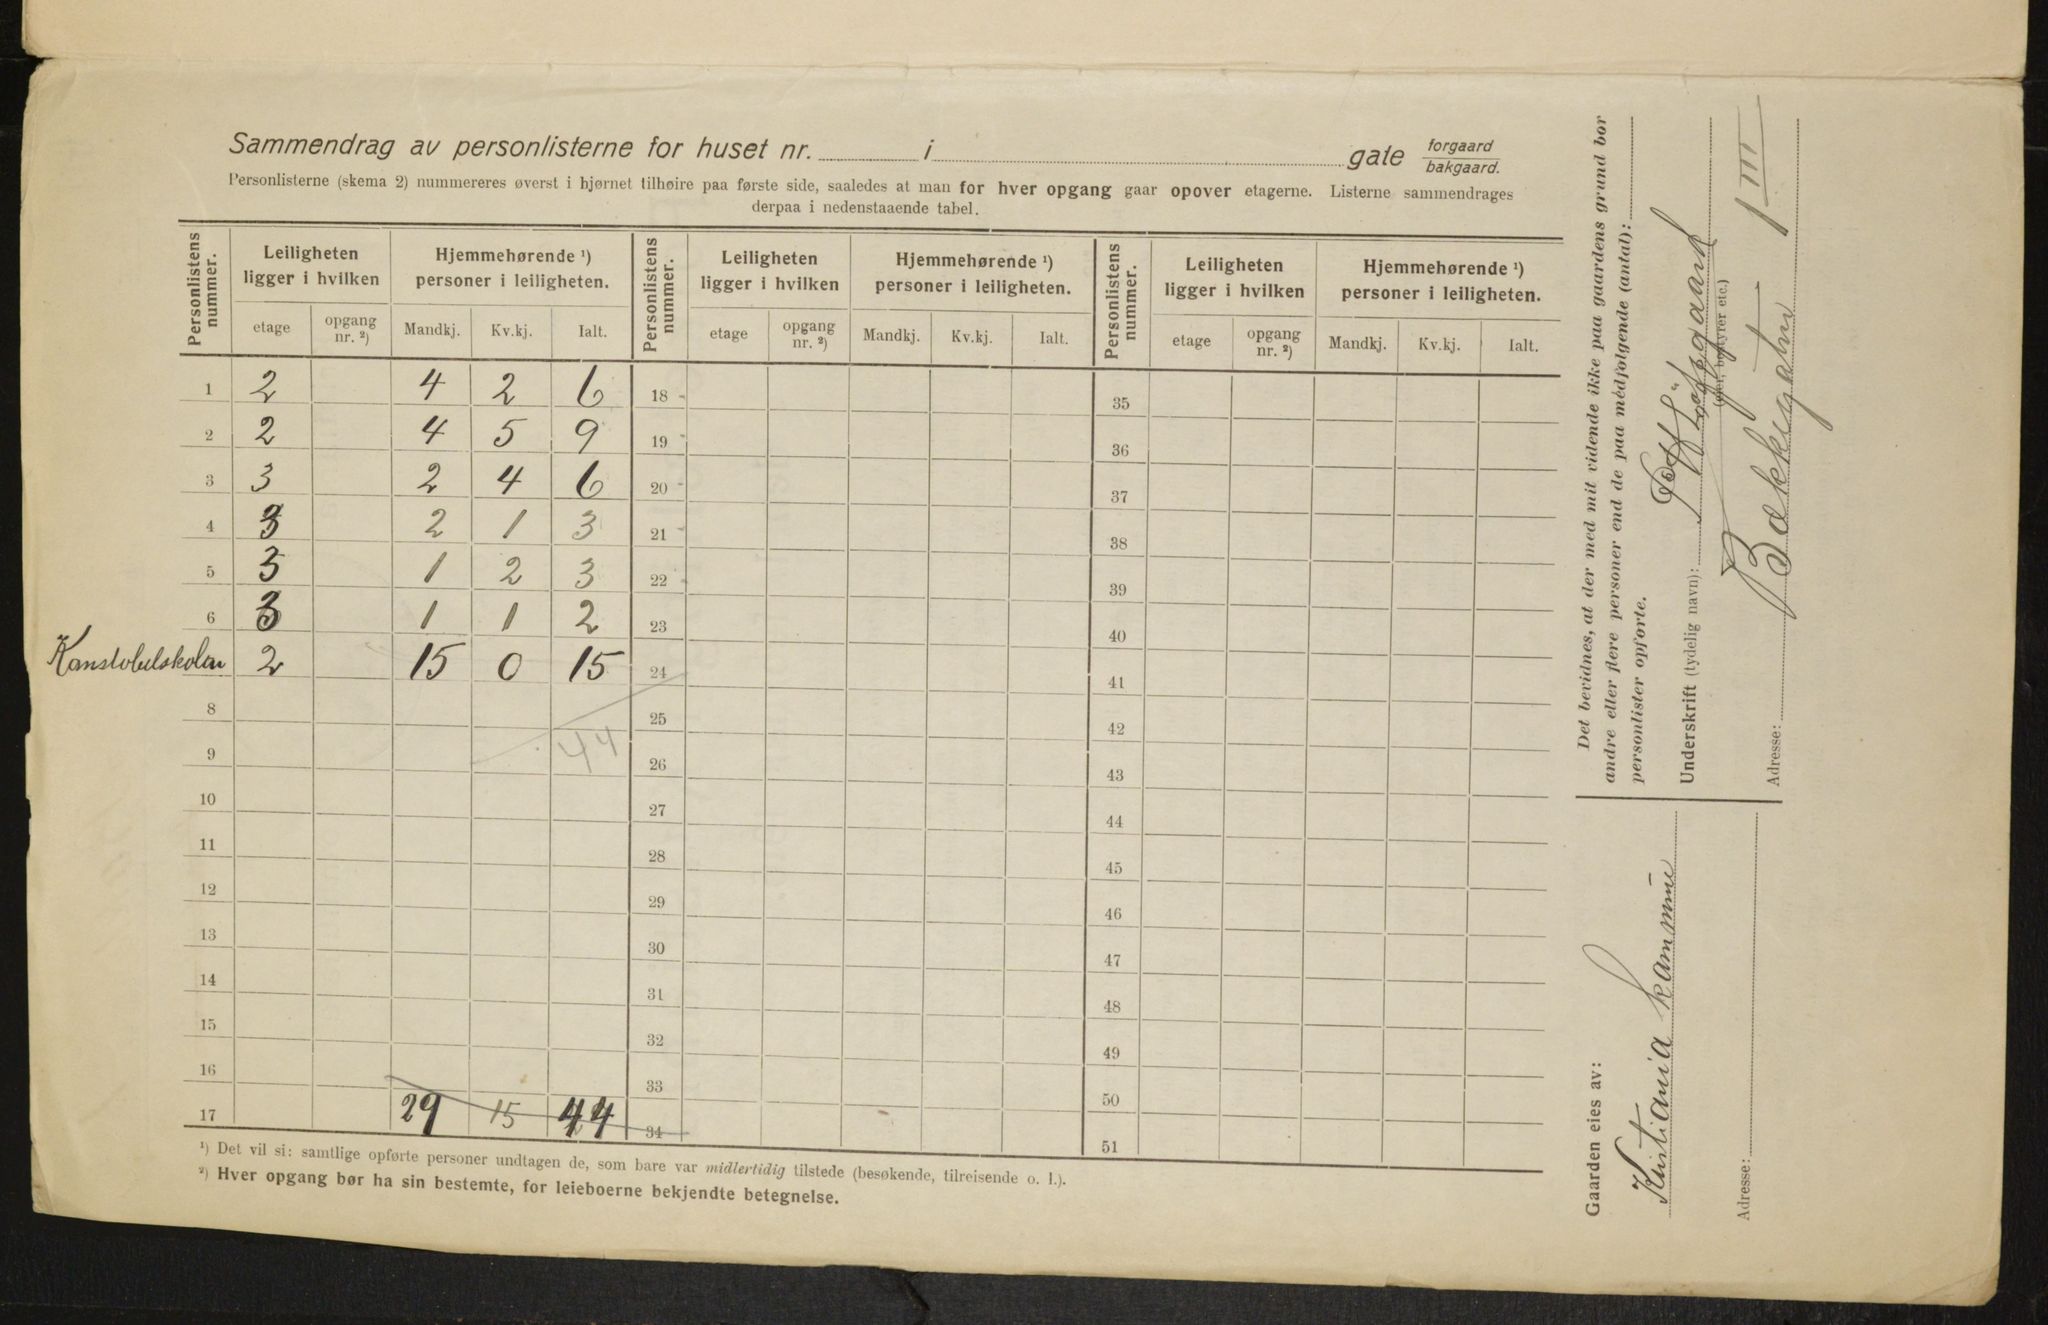 Sammendrag av personlisterne for huset nr. i gate forgaard bakgaard.
Personlisterne (skema 2) nummereres øverst i hjørnet tilhøire paa første side, saaledes at man for hver opgang gaar opover etagerne. Listerne sammendrages
derpaa i nedenstaaende tabel.
Personlistens nummer. Leiligheten ligger i hvilken Hjemmehørende ¹) personer i leiligheten. Personlistens nummer. Leiligheten ligger i hvilken Hjemmehørende ¹) personer i leiligheten. Personlistens nummer. Leiligheten ligger i hvilken Hjemmehørende ¹) personer i leiligheten.
etage opgang nr. ²) Mandkj. Kv.kj. Ialt. etage opgang nr. ²) Mandkj. Kv.kj. Ialt. etage opgang nr. ²) Mandkj. Kv.kj. Ialt.
1 2 4 2 6 18 35
2 2 4 5 9 19 36
3 3 2 4 6 20 37
4 3 2 1 3 21 38
5 3 1 2 3 22 39
6 3 1 1 2 23 40
Konstobelskolen 2 15 0 15 24 41
8 25 42
44
9 26 43
10 27 44
11 28 45
12 29 46
13 30 47
14 31 48
15 32 49
16 33 50
17 29 15 44 34 51
¹) Det vil si: samtlige opførte personer undtagen de, som bare var midlertidig tilstede (besøkende, tilreisende o. l.).
²) Hver opgang bør ha sin bestemte, for leieboerne bekjendte betegnelse.
Det bevidnes, at der med mit vidende ikke paa gaardens grund bor
andre eller flere personer end de paa medfølgende (antal):
personlister opførte.
Underskrift (tydelig navn):
(eier, bestyrer etc.)
Adresse: Bakkegaten 1 III
Gaarden eies av:
Kristiania kommune
Adresse: